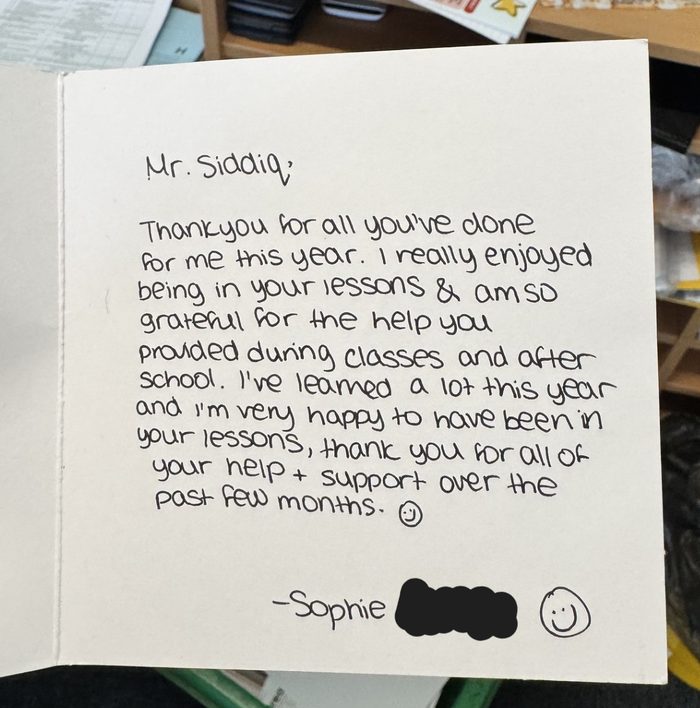 Mr. Siddiq,
Thankyou for all you've done
for me this year. I really enjoyed
being in your lessons & am so
grateful for the help you
provided during classes and after
school. I've learned a lot this year
and I'm very happy to have been in
your lessons, thank you for all of
your help + support over the
past few months. ☺
-Sophie ☺